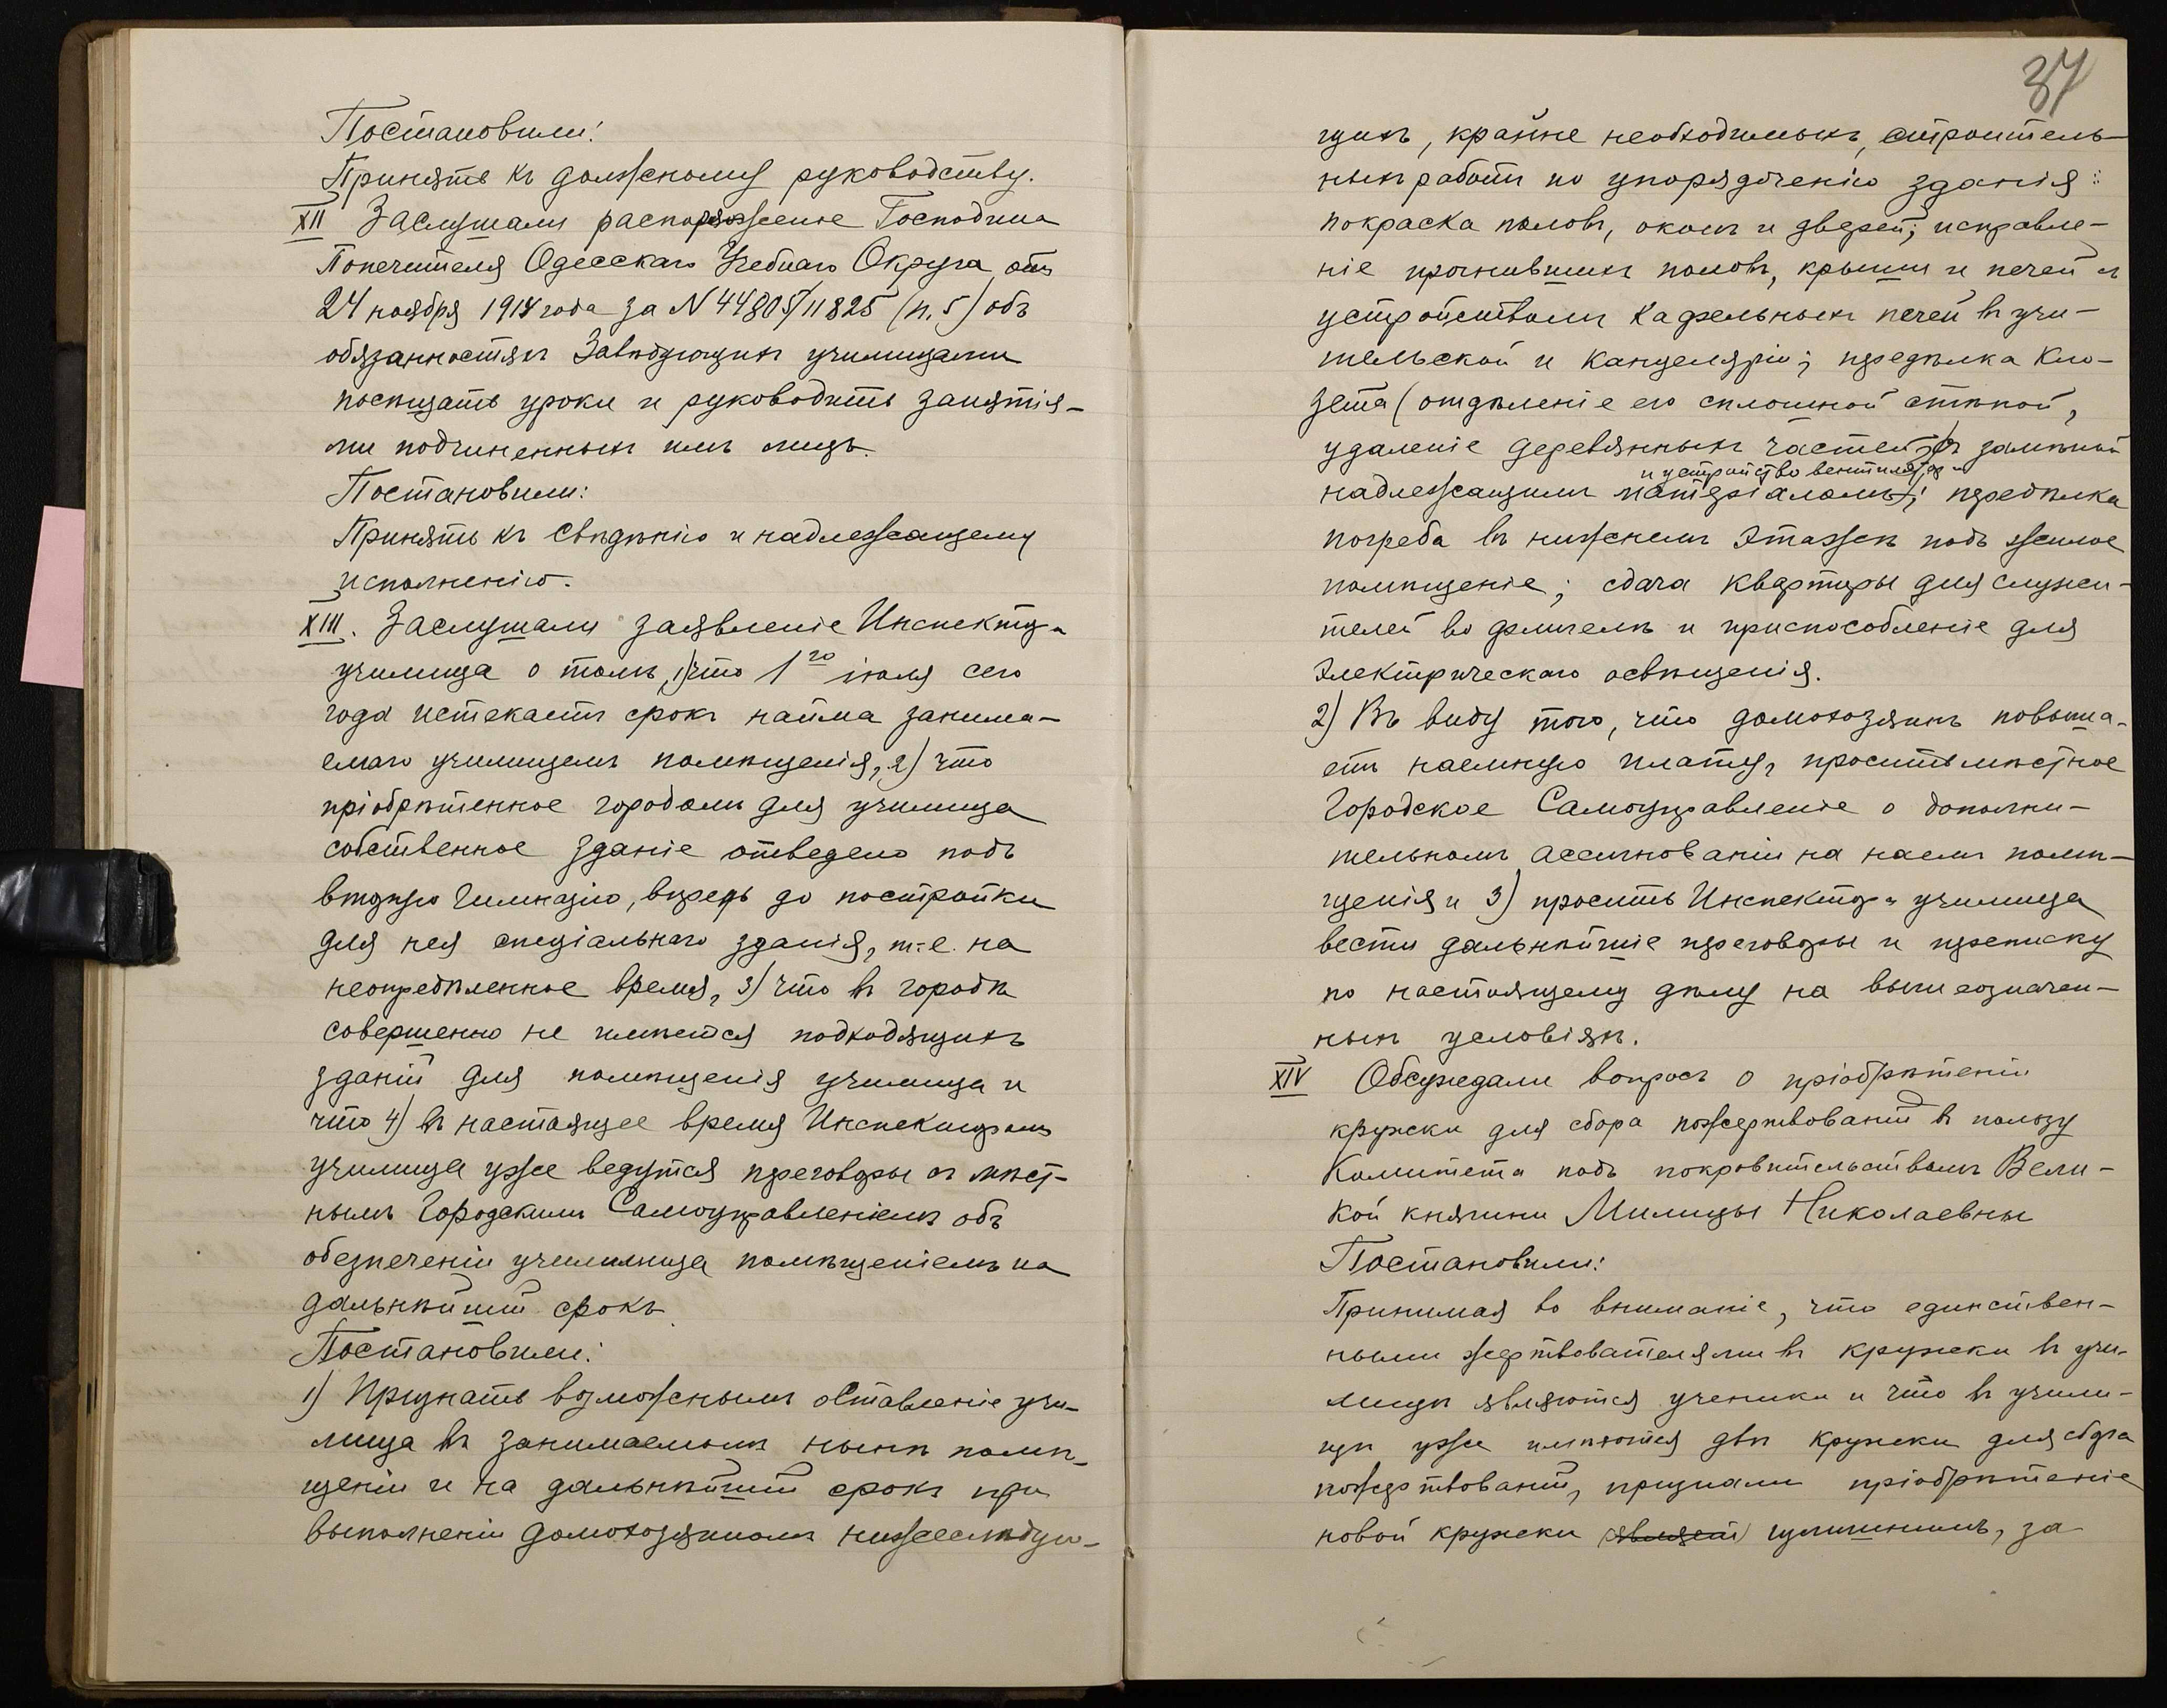 Постановили:
Принять къ должному руководству.
XII Заслушали распоряженіе Господина
Попечителя Одесскаго Учебнаго Округа отъ
24 ноября 1914 года за N 44805/11825 (п. 5) объ
обязанностяхъ Завѣдующихъ училищами
посѣщать уроки и руководить занятія-
ми подчиненныхъ имъ лицъ.
Постановили:
Принять къ свѣдѣнію и надлежащему
исполненію.
XIII. Заслушали заявленіе Инспектора
училища о томъ, 1) что 1го іюля сего
года истекаетъ срокъ найма занима-
емаго училищемъ помѣщенія, 2) что
пріобрѣтенное городомъ для училища
собственное зданіе отведено подъ
вторую Гимназію, впредь до постройки
для нея спеціальнаго зданія, т.-е. на
неопредѣленное время, 3) что въ городѣ
совершенно не имѣется подходящихъ
зданій для помѣщенія училища и
что 4) въ настоящее время Инспекторомъ
училища уже ведутся переговоры съ мѣст-
нымъ Городскимъ Самоуправленіемъ объ
обезпеченіи училища помѣщеніемъ на
дальнѣйшій срокъ.
Постановили:
1) Признать возможнымъ оставленіе учи-
лища въ занимаемомъ нынѣ помѣ-
щеніи и на дальнѣйшій срокъ при
выполненіи домохозяиномъ нижеслѣдую-
37
щихъ, крайне необходимыхъ, строитель-
ныхъ работъ по упорядоченію зданія:
покраска половъ, оконъ и дверей; исправле-
ніе прогнившихъ половъ, крыши и печей съ
устройствомъ кафельныхъ печей въ учи-
тельской и канцеляріи; передѣлка кло-
зета (отдѣленіе его сплошной стѣной,
удаленіе деревянныхъ частей съ замѣной
и устройство вентилятора
надлежащимъ матеріаломъ); передѣлка
погреба въ нижнемъ этажѣ подъ жилое
помѣщеніе; сдача квартиры для служи-
телей во флигелѣ и приспособленіе для
электрическаго освѣщенія.
2) Въ виду того, что домохозяинъ повыша-
етъ наемную плату, просить мѣстное
Городское Самоуправленіе о дополни-
тельномъ ассигнованіи на наемъ помѣ-
щенія и 3) просить Инспектора училища
вести дальнѣйшіе переговоры и переписку
по настоящему дѣлу на вышеозначен-
ныхъ условіяхъ.
XIV Обсуждали вопросъ о пріобрѣтеніи
кружки для сбора пожертвованій въ пользу
Комитета подъ покровительствомъ Вели-
кой княгини Милицы Николаевны
Постановили:
Принимая во вниманіе, что единствен-
ными жертвователями въ кружки въ учи-
лищѣ являются ученики и что въ учили-
щѣ уже имѣются двѣ кружки для сбора
пожертвованій, признали пріобрѣтеніе
новой кружки (являет) излишнимъ, за